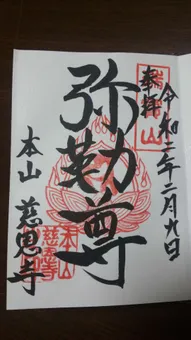 奉拝
令和二年二月九日
弥勒尊
本山 慈恩寺